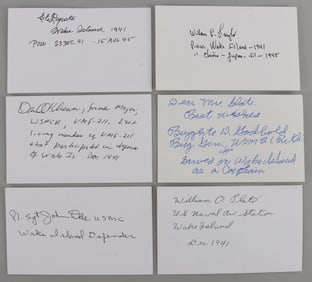 Wake Island, 1941
POW 23 Dec 41 - 15 Aug 45
William P.
P.O.W. Wake Island - 1941
" China - Japan - 1945
former Major,
USMCR, VMF-211. Last
living member of VMF-211
that participated in defense
of Wake Is Dec 1941
Dear Mr.
Best wishes
Brig. Gen. USMC (Ret'd)
Served on Wake Island
as a Captain
M. Sgt John USMC
Wake Island Defender
William O. Plate
US Naval Air Station
Wake Island
Dec 1941